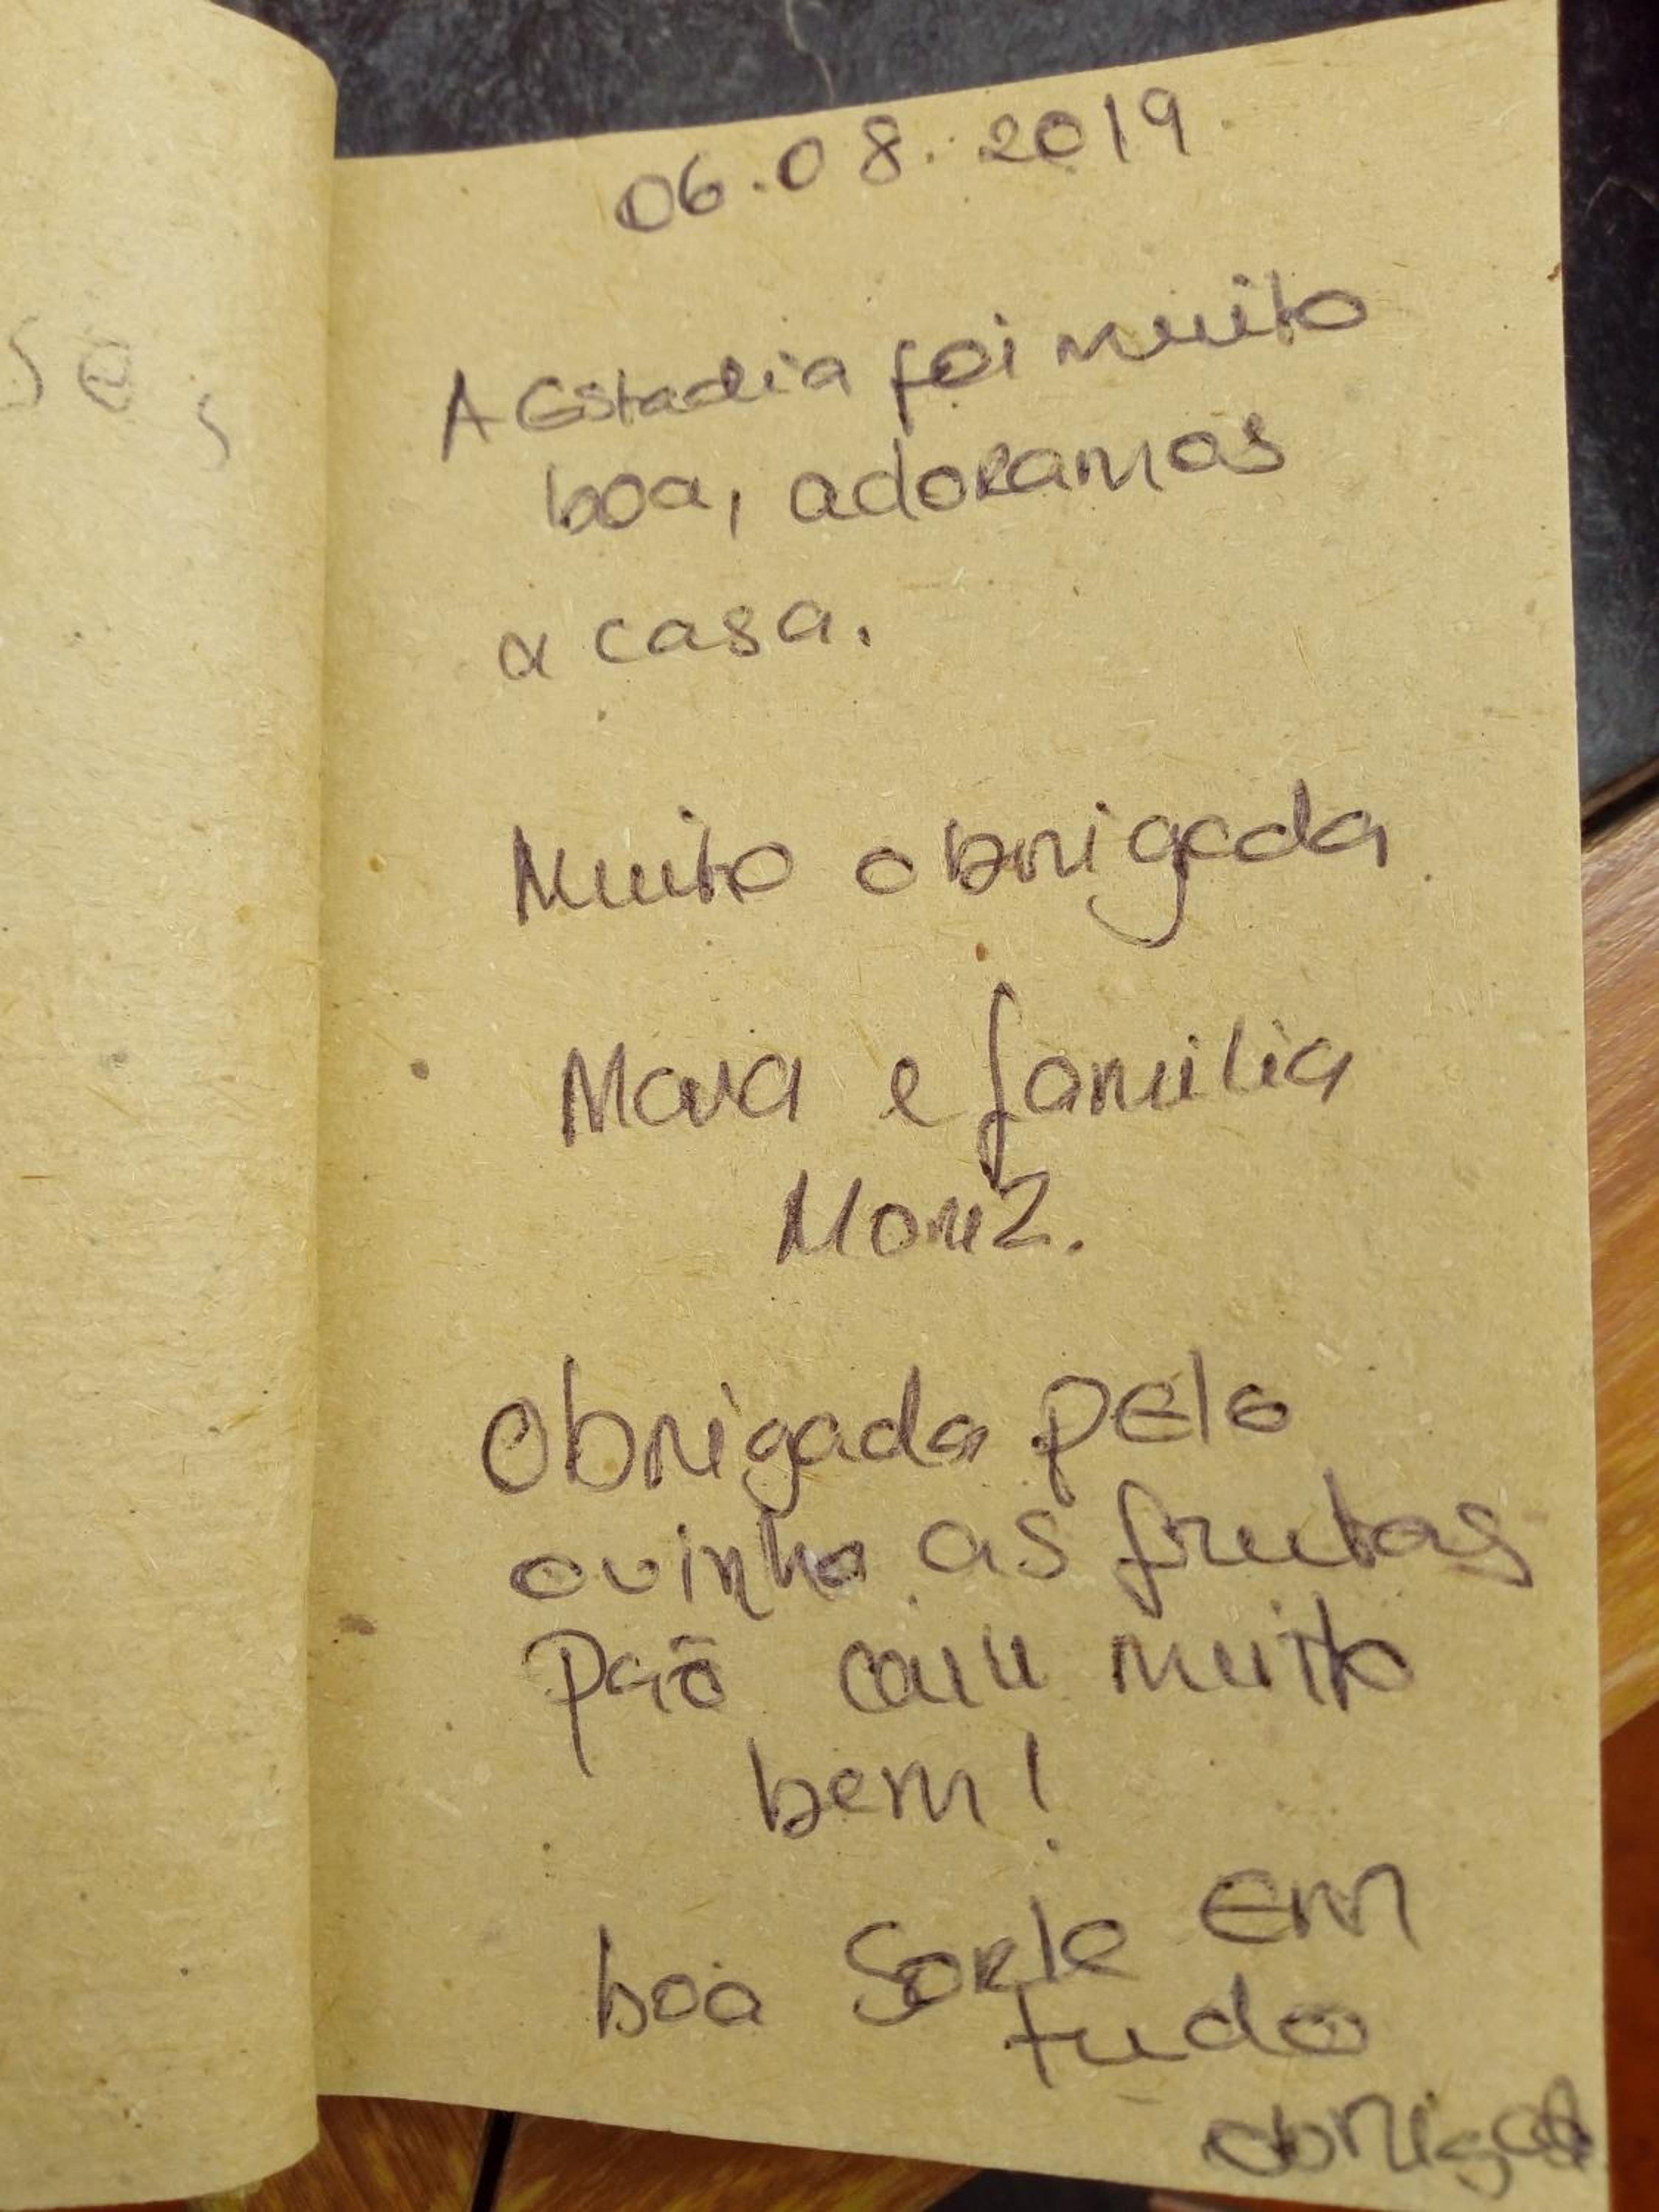 se,
06.08.2019
A Estadia foi muito
boa, adoramos
a casa.
Muito obrigada.
e família
Moniz.
Obrigada pelo
ovinho as frutas
Pão caiu muito
bem!
boa Sorte Em
tudo